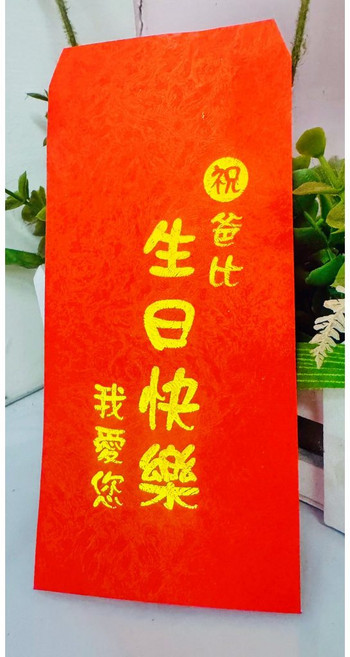 祝爸比
生日快樂
我愛您